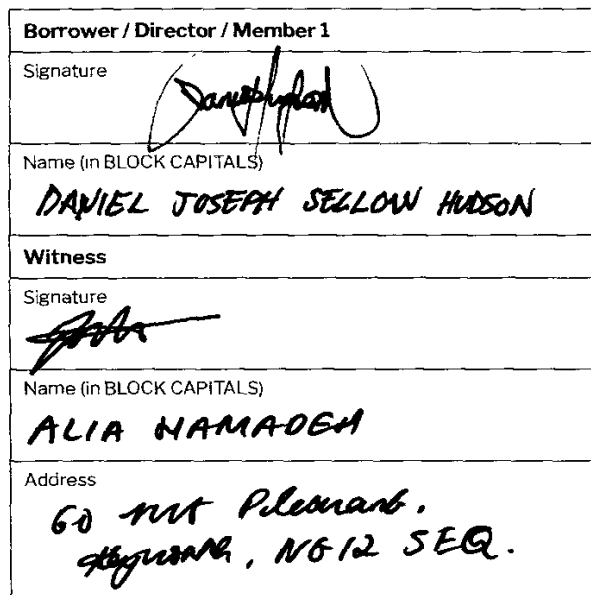 Borrower / Director / Member 1
Signature
Name (in BLOCK CAPITALS)
DANIEL JOSEPH SELLOW HUDSON
Witness
Signature
Name (in BLOCK CAPITALS)
ALIA HAMADEH
Address
60 Mnt Pleasant.
Keyworth, NG12 5EQ.